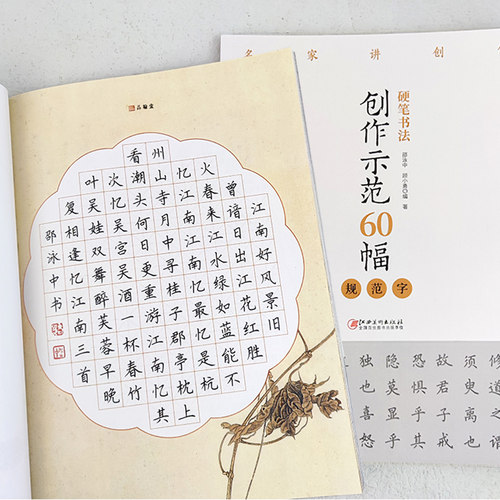 品翰堂
江南好风景旧
曾谙日出江花红胜
火春来江水绿如蓝能不
忆江南江南忆最忆是杭
州山寺月中寻桂子郡亭枕上
看潮头何日更重游江南忆其
次忆吴宫吴酒一杯春竹
叶吴娃双舞醉芙蓉早晚
复相逢忆江南三首
邵泳中书
名家讲创
硬笔书法
创作示范60幅
规范字
江西美术出版社
全国百佳图书出版单位
修
之谓
须臾离也
故君子戒
恐惧乎其
隐莫显乎
独也喜怒